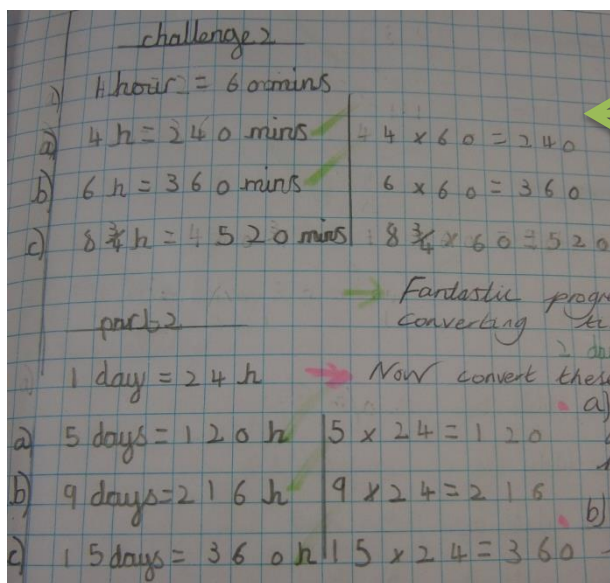 challenge 2
1) 1 hour = 60 mins
a) 4 h = 240 mins 4 x 60 = 240
b) 6 h = 360 mins 6 x 60 = 360
c) 8 ¾ h = 520 mins 8 ¾ x 60 = 520
Fantastic progr
converting
part 2
1 day = 24 h Now convert these
a)
a) 5 days = 120 h 5 x 24 = 120
b) 9 days = 216 h 9 x 24 = 216
b)
c) 15 days = 360 h 15 x 24 = 360